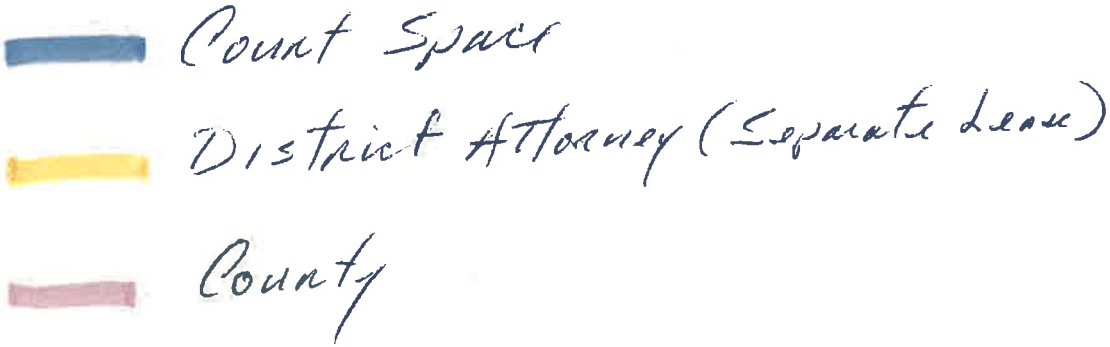 Court Space
District Attorney (Separate Lease)
County